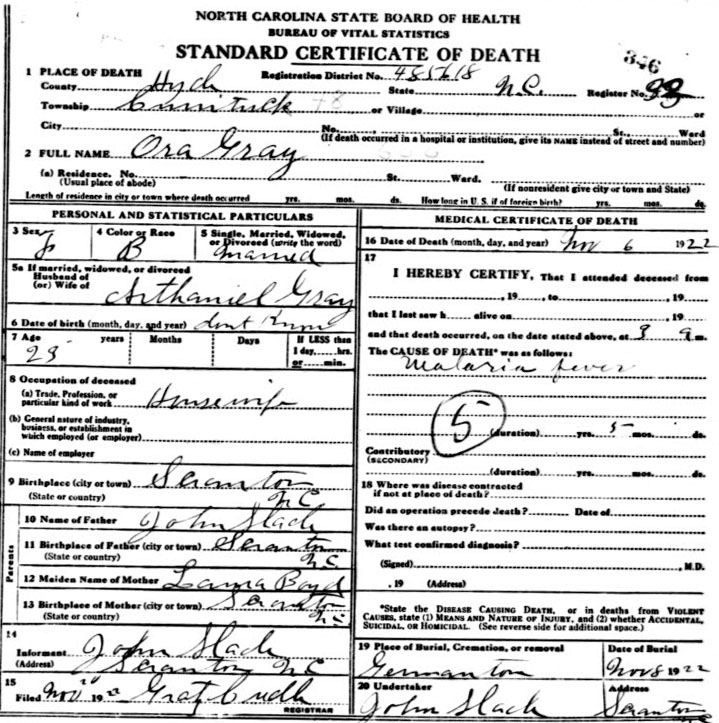 NORTH CAROLINA STATE BOARD OF HEALTH
BUREAU OF VITAL STATISTICS
STANDARD CERTIFICATE OF DEATH
1 PLACE OF DEATH Registration District No. 485618 Register No.
County Hyde State N.C.
Township Currituck or Village or
City No. St. Ward
(If death occurred in a hospital or institution, give its NAME instead of street and number)
2 FULL NAME Ora Gray
(a) Residence. No. St. Ward.
(Usual place of abode) (If nonresident give city or town and State)
Length of residence in city or town where death occurred yrs. mos. ds. How long in U. S. if of foreign birth? yrs. mos. ds.
PERSONAL AND STATISTICAL PARTICULARS
3 Sex 4 Color or Race 5 Single, Married, Widowed,
or Divorced (write the word)
F B Married
5a If married, widowed, or divorced
Husband of
(or) Wife of Nathaniel Gray
6 Date of birth (month, day, and year) dont Know
7 Age years Months Days If LESS than
1 day,.....hrs.
or.....min.
8 Occupation of deceased
(a) Trade, Profession, or
particular kind of work Housewife
(b) General nature of industry,
business, or establishment in
which employed (or employer)
(c) Name of employer
9 Birthplace (city or town) Scranton
(State or country) NC
Parents
10 Name of Father John Slade
11 Birthplace of Father (city or town) Scranton
(State or country) N.C.
12 Maiden Name of Mother Boyd
13 Birthplace of Mother (city or town) Scranton
(State or country) NC
14
Informant John Slade
(Address) Scranton NC
15
Filed Nov 19 22
REGISTRAR
MEDICAL CERTIFICATE OF DEATH
16 Date of Death (month, day, and year) Nov 6 1922
17
I HEREBY CERTIFY, That I attended deceased from
, 19 , to , 19
that I last saw h alive on , 19
and that death occurred, on the date stated above, at m.
The CAUSE OF DEATH* was as follows:
Malaria fever
5 (duration) yrs. 5 mos. ds.
Contributory
(SECONDARY)
(duration) yrs. mos. ds.
18 Where was disease contracted
if not at place of death?
Did an operation precede death? Date of
Was there an autopsy?
What test confirmed diagnosis?
(Signed) , M.D.
, 19 (Address)
*State the DISEASE CAUSING DEATH, or in deaths from VIOLENT
CAUSES, state (1) MEANS AND NATURE OF INJURY, and (2) whether ACCIDENTAL,
SUICIDAL, or HOMICIDAL. (See reverse side for additional space.)
19 Place of Burial, Cremation, or removal Date of Burial
Germanton Nov 8 1922
20 Undertaker Address
John Slade Scranton